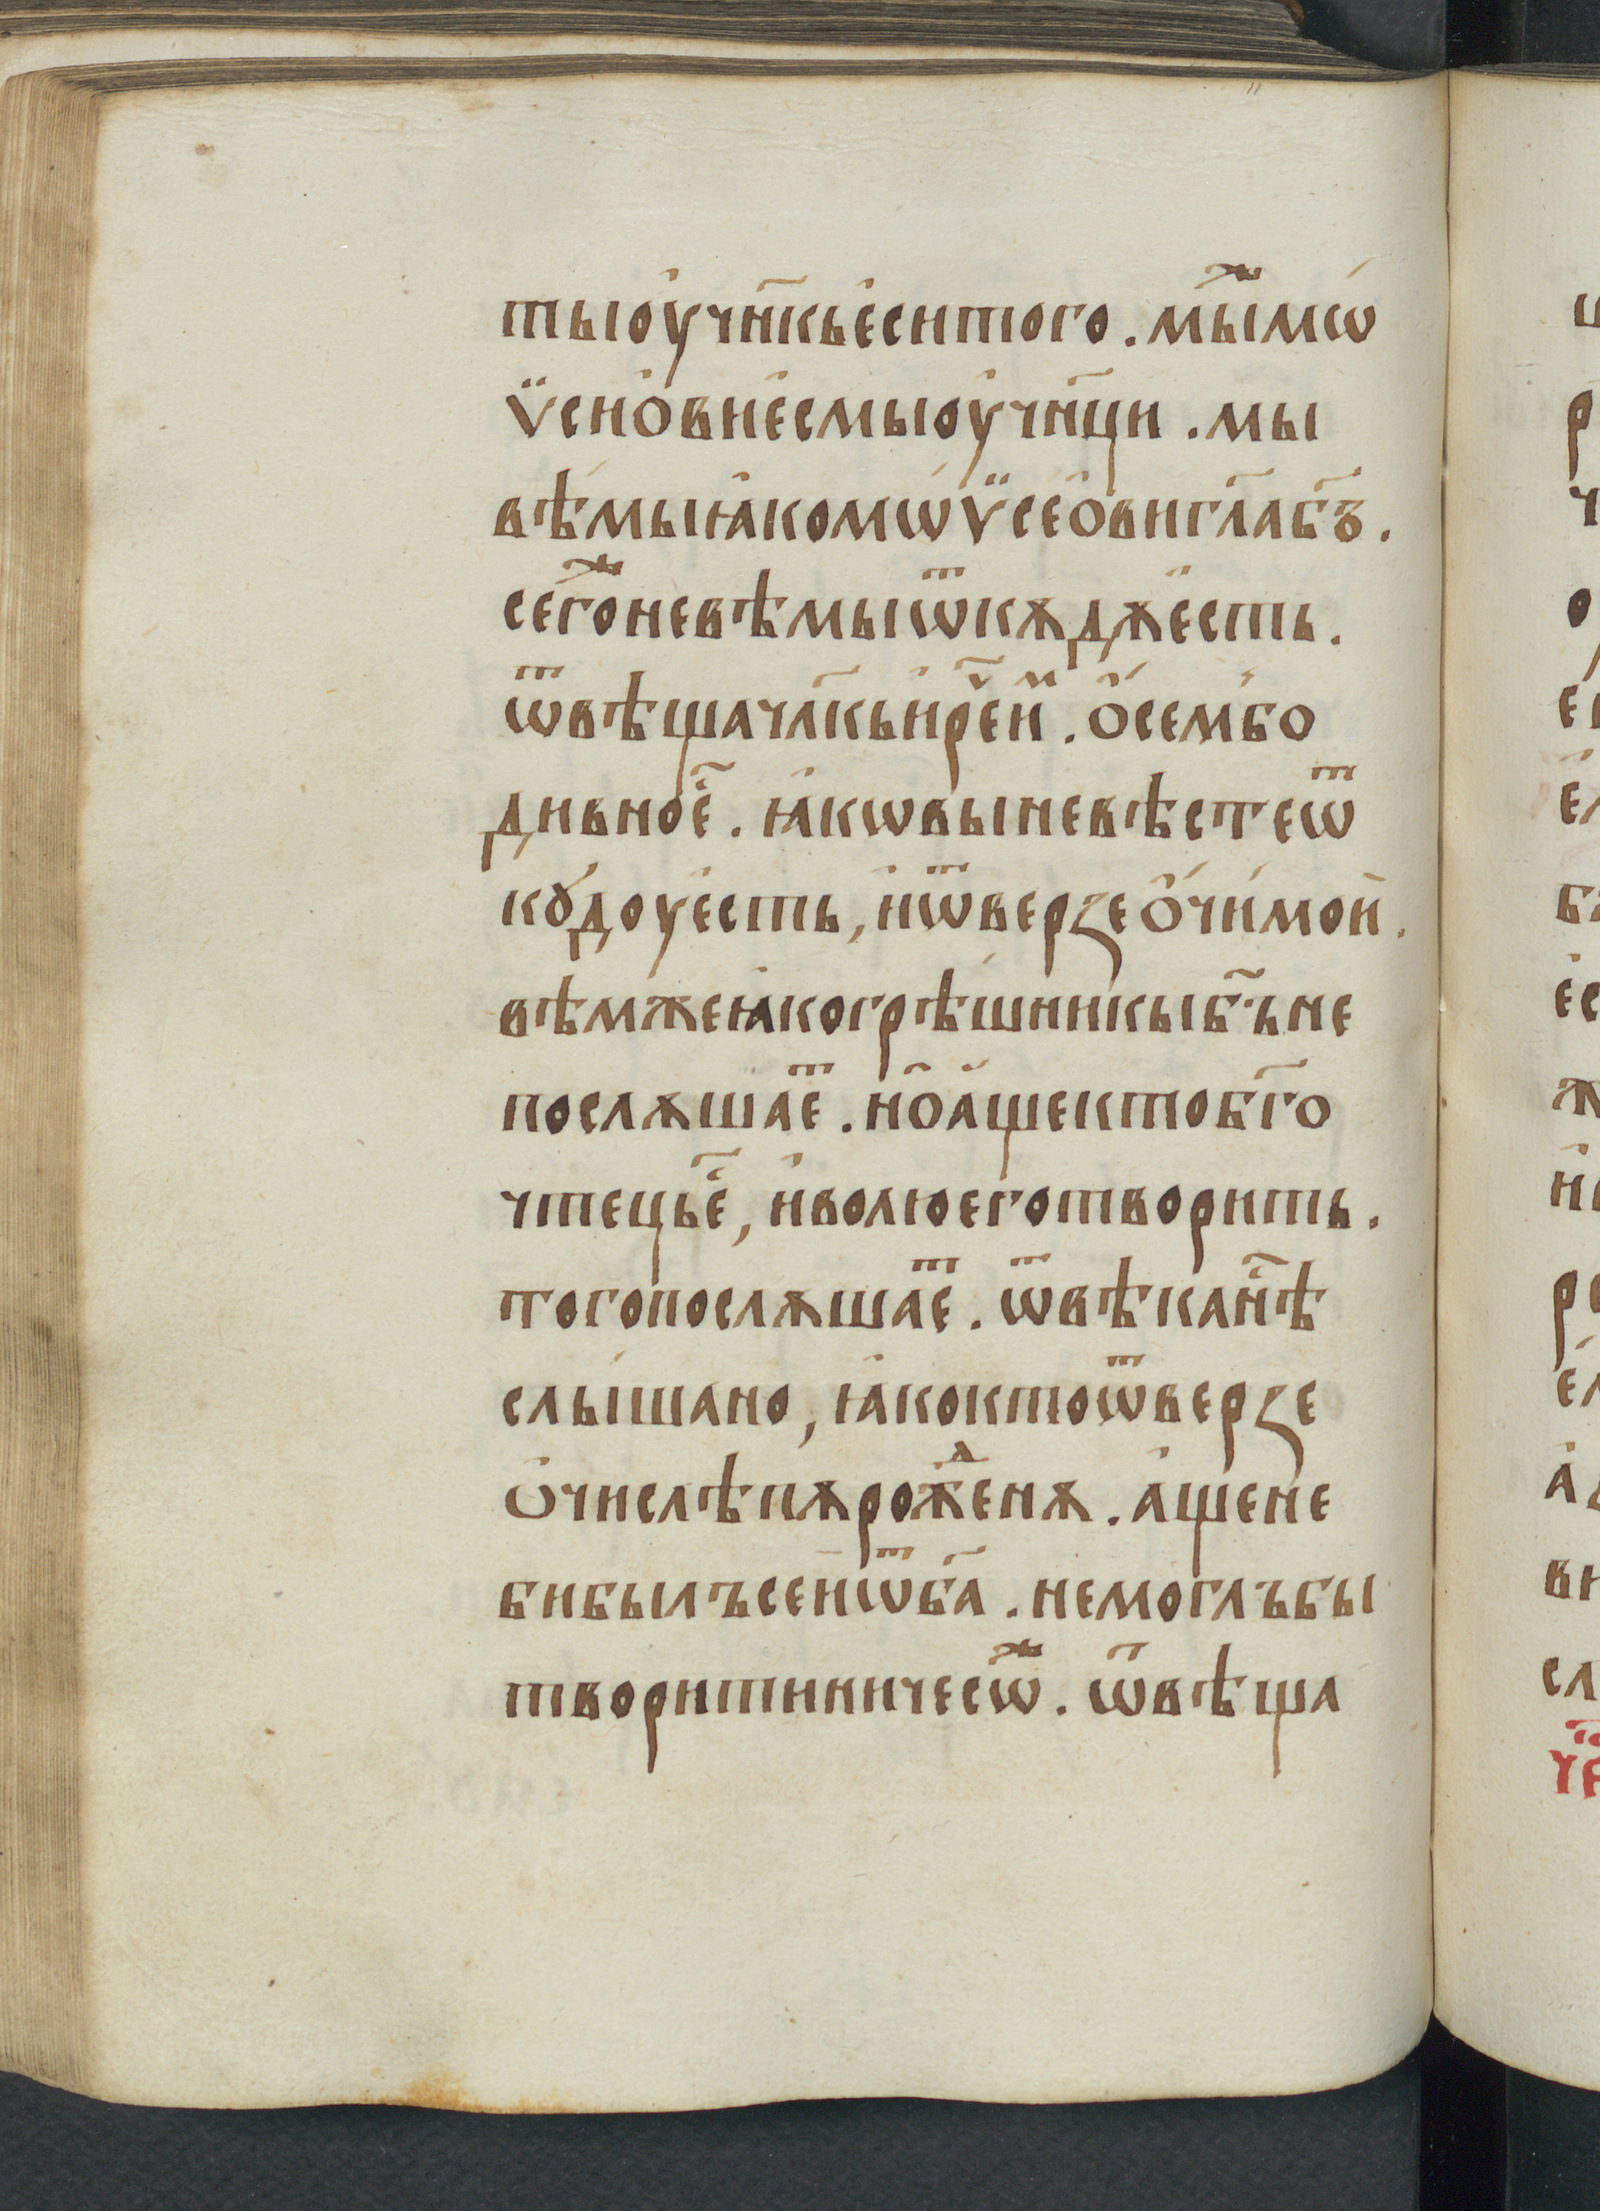 тыѹ҆чн҃кьѐситого. мыⷤ҇мѡ
ѷсиѻвиѐсмыѹ҆чн҃ци. мы
вѣмыꙗ҆комѡѷсеѻвигл҃аб҃ъ.
сегоⷤ҇невѣмыѿкѫдѫѐсть.
ѿвѣщачл҃кьи҆реⷱ҇и҆ⷨ. ѻ҆сембо
дивное҃. ꙗ҆кѡвыневѣстеѿ
кꙋ́доуѐсть, и҆ѿверзеѻ҆чи́мои҆.
вѣмжеꙗ҆когрѣ́шникыб҃ъне
послѫшаеⷮ. нѻ҆а҆щектоб҃го
чтецье҃, и҆волюеготворить.
тогопослѫшаеⷮ. ѿвѣкан҃ѣ
слы́шано, ꙗ҆коктоѿверзе
ѻ҆числѣпѫрожⷣенѫ. а҆щене
бибылъсеиѿб҃а. немоглъбы
творитиничесѡⷤ. ѿвѣща